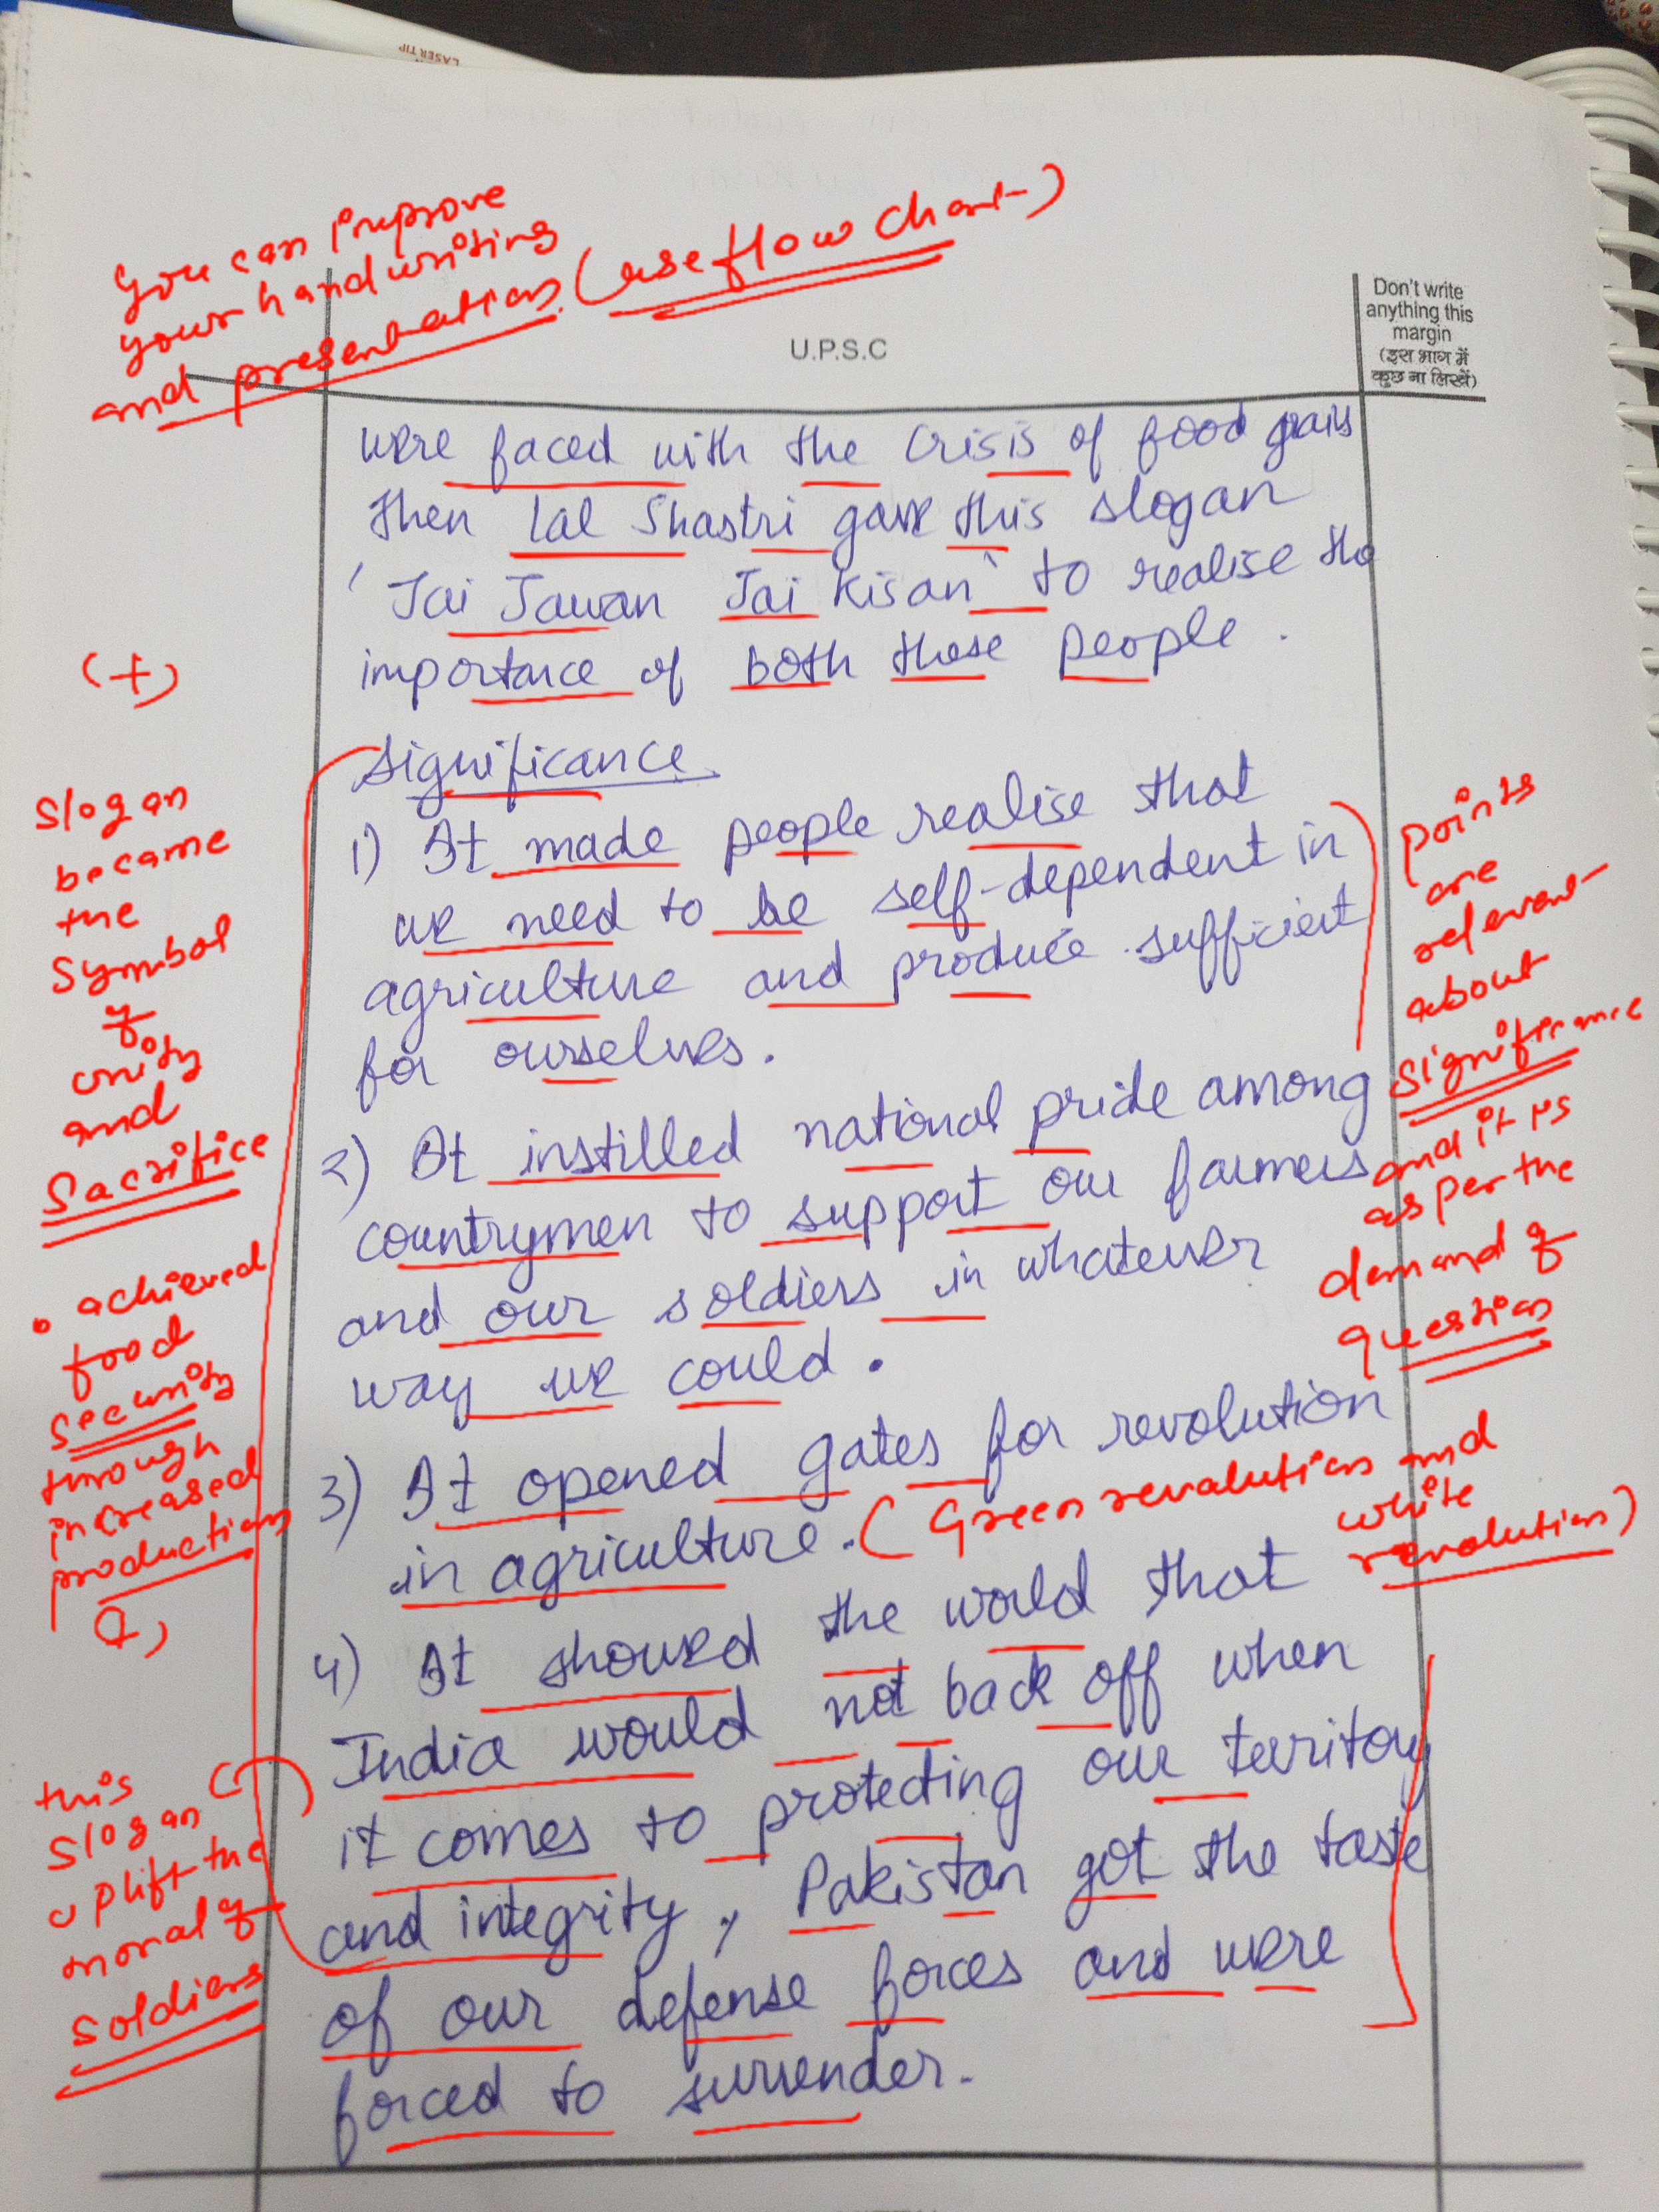 LASER TIP
You can improve
your handwriting
and presentation. (use flow chart)
U.P.S.C
Don't write
anything this
margin
(इस भाग में
कुछ ना लिखें)
were faced with the crisis of food grains
then Lal Shastri gave this slogan
'Jai Jawan Jai Kisan' to realise the
importance of both these people.
(+)
Slogan
became
the
Symbol
of
unity
and
Sacrifice
• achieved
food
security
through
increased
production
(+)
this
slogan
uplift the
moral of
soldiers
Significance
1) It made people realise that
we need to be self-dependent in
agriculture and produce sufficient
for ourselves.
2) It instilled national pride among
countrymen to support our farmers
and our soldiers in whatever
way we could.
3) It opened gates for revolution
in agriculture. (Green revolution and
white
revolution)
4) It showed the world that
India would not back off when
it comes to protecting our territory
and integrity, Pakistan got the taste
of our defense forces and were
forced to surrender.
points
are
relevant
about
significance
and it is
as per the
demand of
question